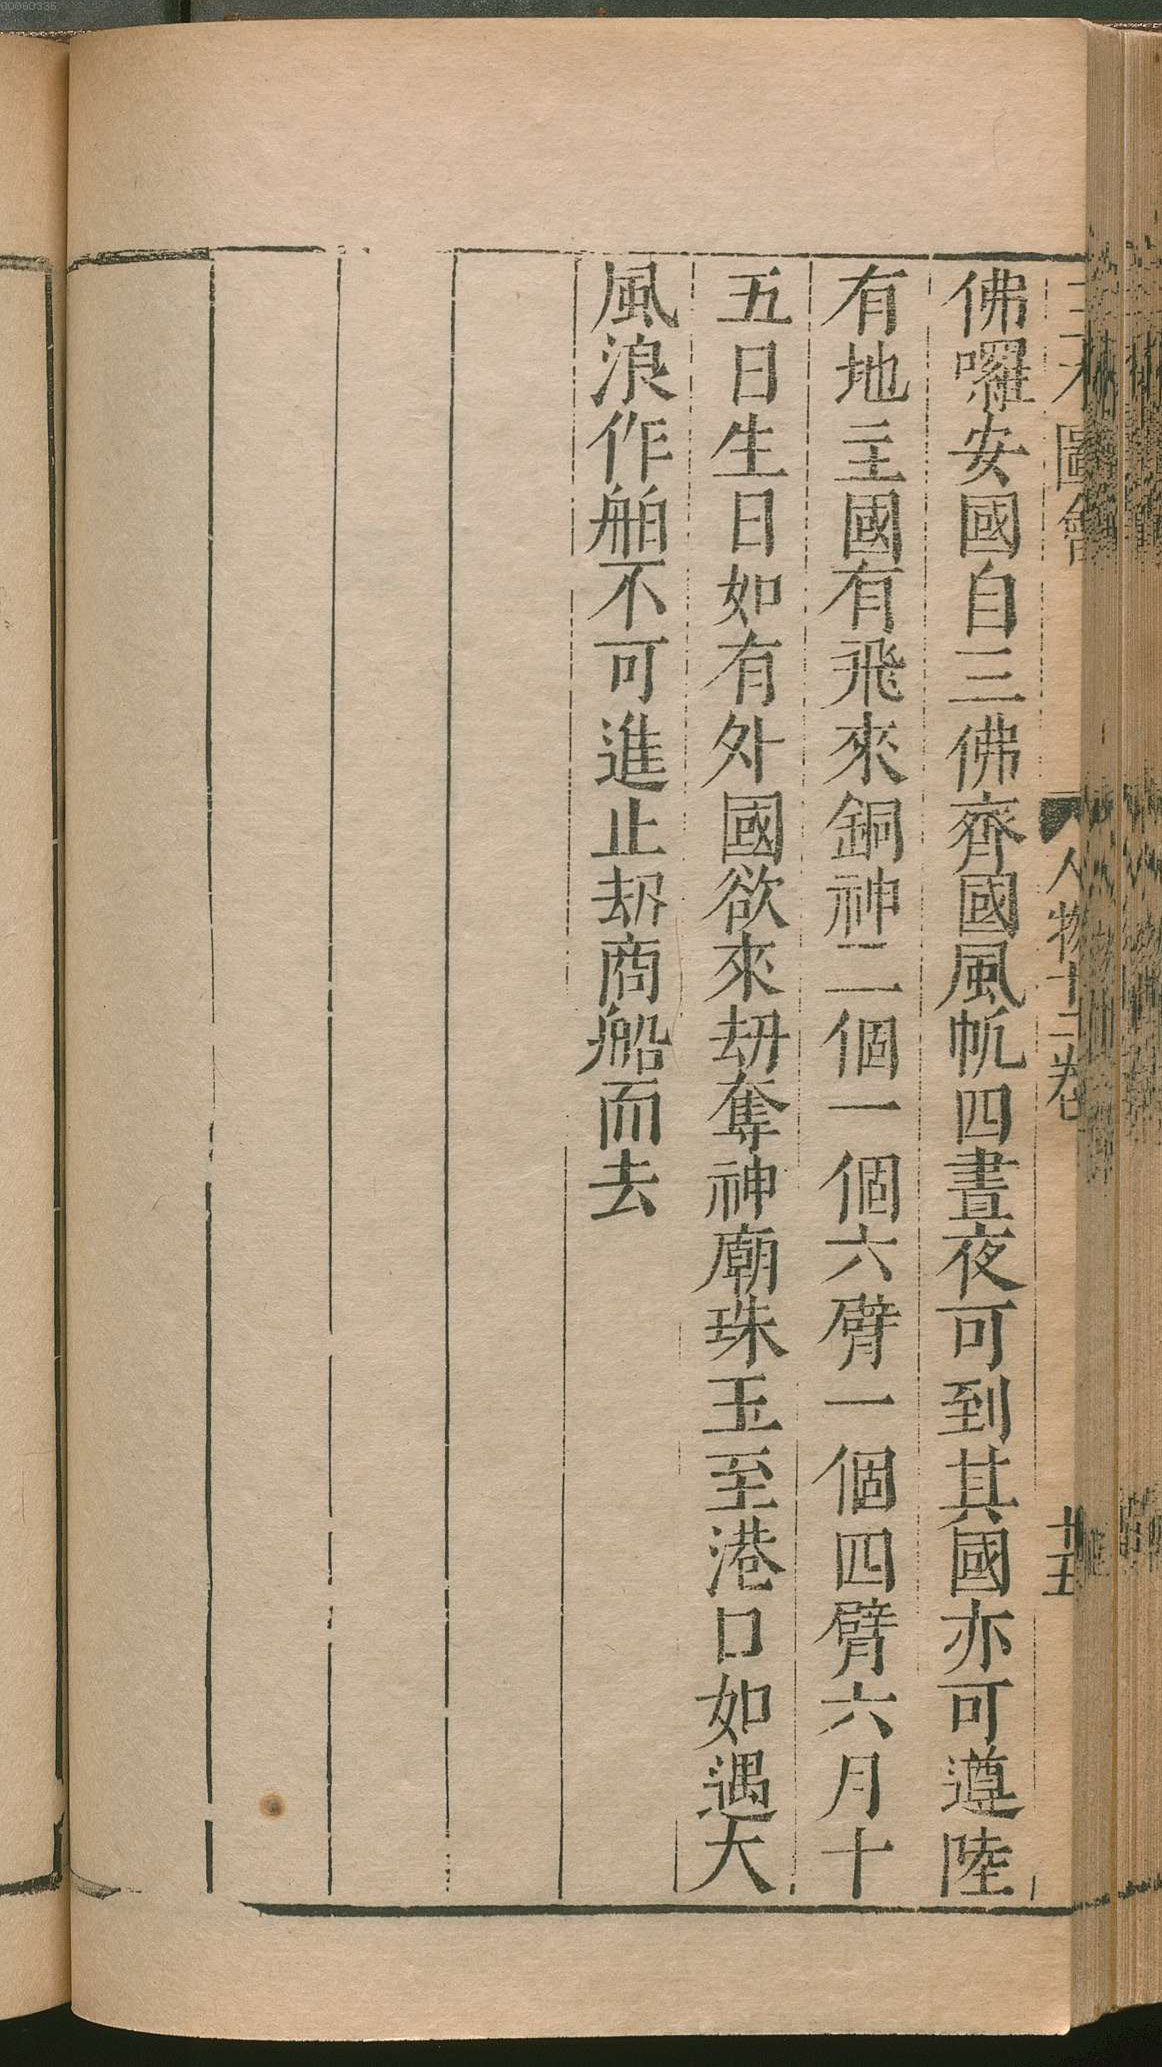 三才圖會 人物十二卷 廿五
佛囉安國自三佛齊國風帆四晝夜可到其國亦可遵陸
有地主國有飛來銅神二個一個六臂一個四臂六月十
五日生日如有外國欲來刼奪神廟珠玉至港口如遇大
風浪作舶不可進止刼商船而去
00060335